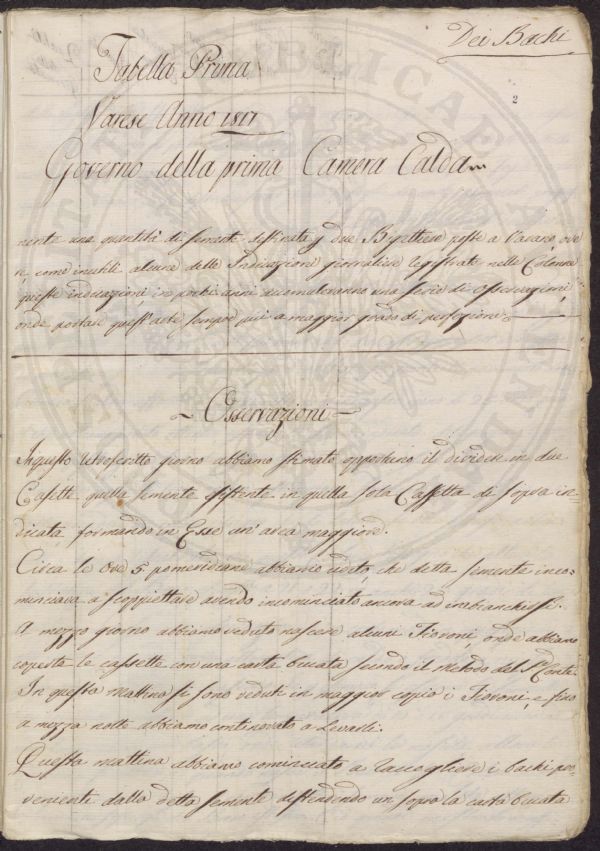 Dei Bachi
2
Tabella Prima
Varese Anno 1817
Governo della prima Camera Calda
nente una quantità di semente destinata p due Bigattiere poste a Casano, ove
n, come inutili alcune delle Indicazioni giornaliere registrate nelle Colonne
queste indicazioni in pochi anni accumuleranno una serie di osservazioni,
onde portare quest'arte sempre più a maggior grado di perfezione.
Osservazioni
In questo retroscritto giorno abbiamo stimato opportuno il dividere in due
Casette quella semente esistente in quella sola Cassetta di sopra in-
dicata, formando in Esse un' area maggiore.
Circa le Ore 5 pomeridiane abbiamo veduto, che detta semente inco-
minciava a scoppiettare avendo incominciato ancora ad imbianchirsi.
A mezzo giorno abbiamo veduto nascere alcuni Fioroni, onde abbiamo
coperta le cassette con una carta bucata secondo il metodo del Sr Conte
In questa mattina si sono veduti in maggior copia i Fioroni, e fino
a mezza notte abbiamo continovato a Levarli.
Questa mattina abbiamo cominciato a raccogliere i bachi pro-
venienti dalla detta semente distendendo un sopra la carta bucata